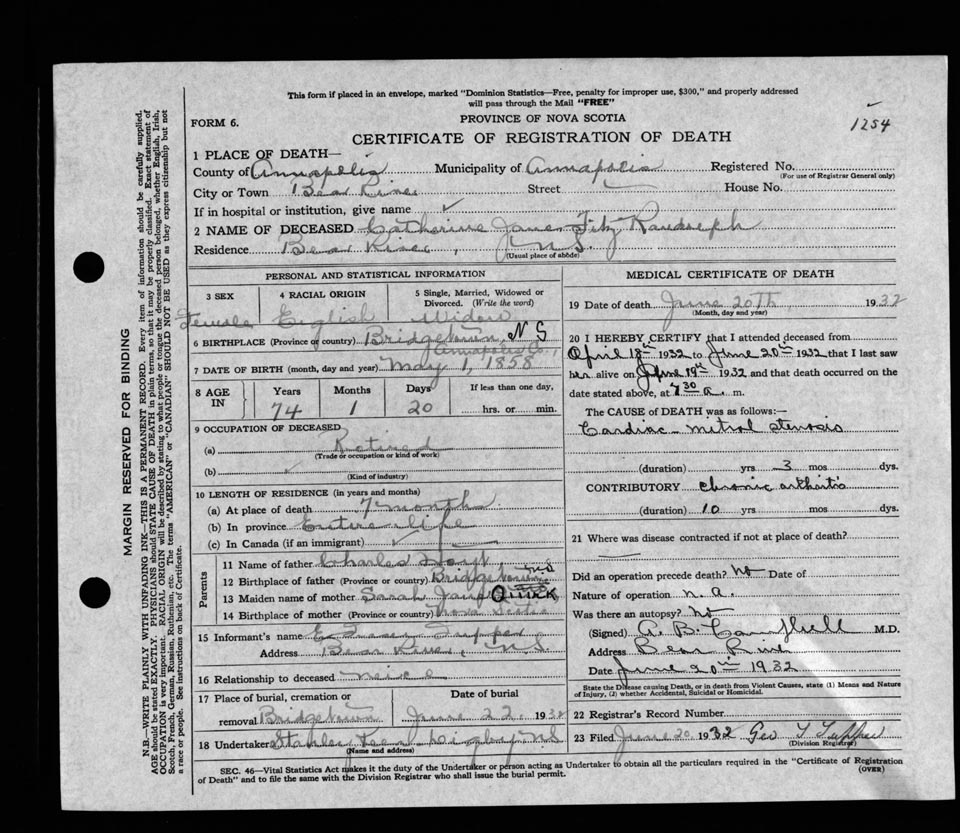 This form if placed in an envelope, marked "Dominion Statistics—Free, penalty for improper use, $300," and properly addressed
will pass through the Mail "FREE"
1254
FORM 6.
PROVINCE OF NOVA SCOTIA
CERTIFICATE OF REGISTRATION OF DEATH
1 PLACE OF DEATH—
County of Annapolis Municipality of Annapolis Registered No.
(For use of Registrar General only)
City or Town Bear River Street House No.
If in hospital or institution, give name ✓
2 NAME OF DECEASED Catherine James Fitz Randolph
Residence Bear River, N.S.
(Usual place of abode)
PERSONAL AND STATISTICAL INFORMATION
3 SEX 4 RACIAL ORIGIN 5 Single, Married, Widowed or Divorced. (Write the word)
Female English Widow
6 BIRTHPLACE (Province or country) Bridgetown, N S
Annapolis Co.,
7 DATE OF BIRTH (month, day and year) May 1, 1858
8 AGE IN Years Months Days If less than one day,
74 1 20 hrs. or min.
9 OCCUPATION OF DECEASED
(a) Retired
(Trade or occupation or kind of work)
(b) ✓
(Kind of industry)
10 LENGTH OF RESIDENCE (in years and months)
(a) At place of death 7 month
(b) In province Entire life
(c) In Canada (if an immigrant) ✓
Parents
11 Name of father Charles Hoyt
12 Birthplace of father (Province or country) Bridgetown N.S
13 Maiden name of mother Sarah Jane QUIRK
14 Birthplace of mother (Province or country) Nova Scotia
15 Informant's name Tupper
Address Bear River, N.S.
16 Relationship to deceased neice
17 Place of burial, cremation or removal Bridgetown
Date of burial June 22, 1932
18 Undertaker Stanley Digby N.S
(Name and address)
MEDICAL CERTIFICATE OF DEATH
19 Date of death June 20Th 1932
(Month, day and year)
20 I HEREBY CERTIFY that I attended deceased from
April 18th 1932 to June 20th 1932 that I last saw
her alive on June 19th 1932 and that death occurred on the
date stated above, at 7 30 a. m.
The CAUSE of DEATH was as follows:—
Cardiac - mitral stenosis
(duration) yrs 3 mos dys.
CONTRIBUTORY chronic arthritis
(duration) 10 yrs mos dys.
21 Where was disease contracted if not at place of death?
Did an operation precede death? No Date of
Nature of operation n. a.
Was there an autopsy? No
(Signed) A. B. Campbell M.D.
Address Bear River
Date June 20th 1932
State the Disease causing Death, or in death from Violent Causes, state (1) Means and Nature
of Injury, (2) whether Accidental, Suicidal or Homicidal.
22 Registrar's Record Number
23 Filed June 20 1932 Geo T Tupper
(Division Registrar)
SEC. 46—Vital Statistics Act makes it the duty of the Undertaker or person acting as Undertaker to obtain all the particulars required in the "Certificate of Registration
of Death" and to file the same with the Division Registrar who shall issue the burial permit.
(OVER)
MARGIN RESERVED FOR BINDING
N.B.—WRITE PLAINLY WITH UNFADING INK—THIS IS A PERMANENT RECORD. Every item of information should be carefully supplied.
AGE should be stated EXACTLY. PHYSICIANS should STATE CAUSE OF DEATH in plain terms, so that it may be properly classified. Exact statement of
OCCUPATION is very important. RACIAL ORIGIN will be described by stating to what people or tongue the deceased person belonged, whether English, Irish,
Scotch, French, German, Russian, Ruthenian, etc. The terms "AMERICAN" or "CANADIAN" SHOULD NOT BE USED as they express citizenship but not
a race or people. See instructions on back of Certificate.